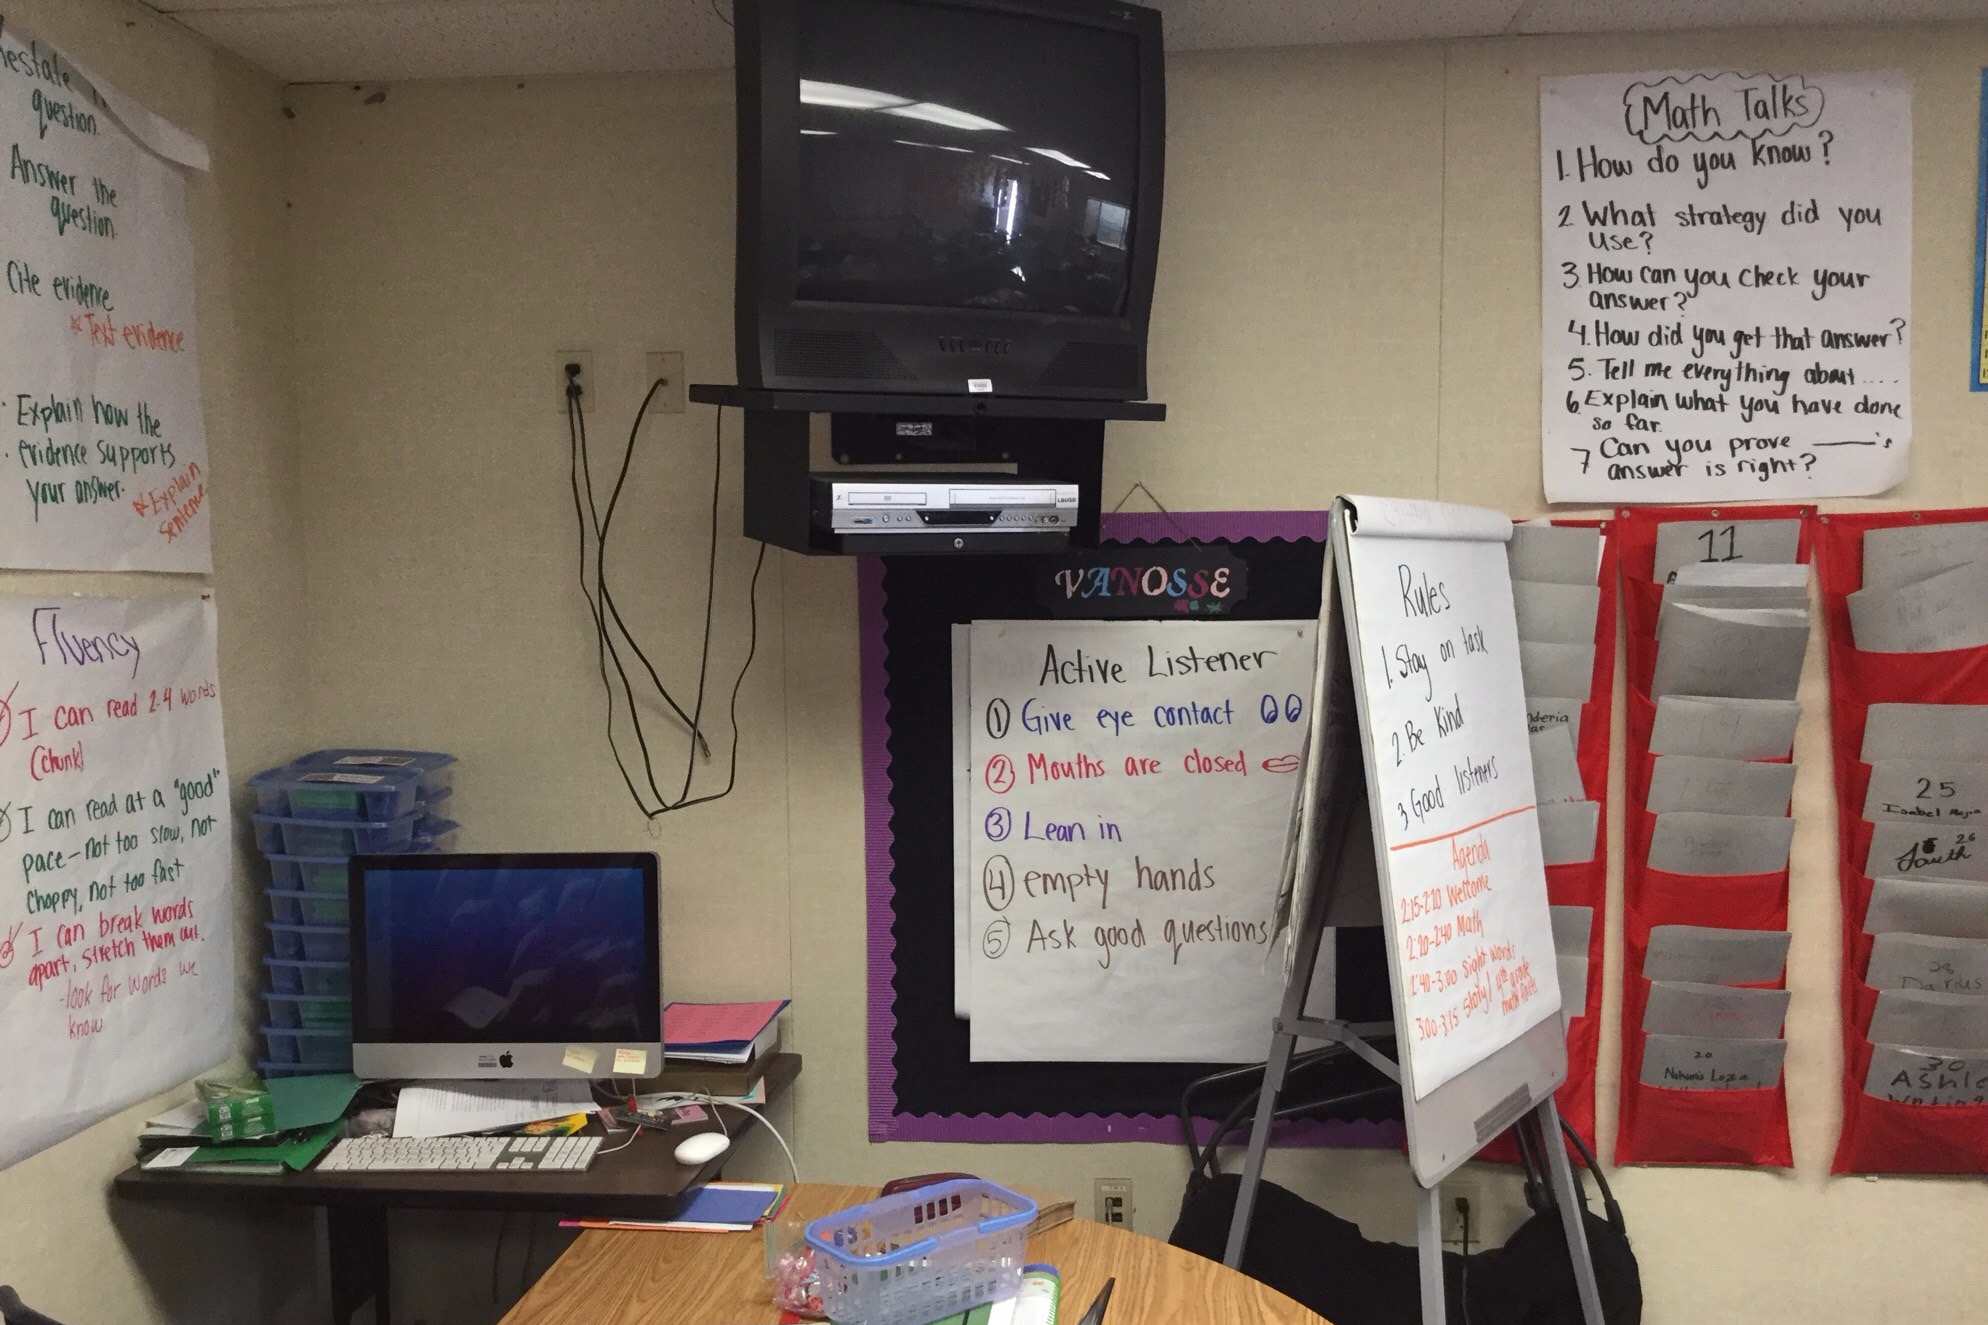 question.
Answer the
question.
Cite evidence
* Text evidence
· Explain how the
· evidence supports
your answer.
* Explain
sentence
Fluency
I can read 2-4 words
(chunk)
I can read at a "good"
pace - not too slow, not
choppy, not too fast
I can break words
apart, stretch them out.
-look for words we
know
VANOSSE
Active Listener
① Give eye contact
② Mouths are closed
③ Lean in
④ empty hands
⑤ Ask good questions
Rules
1. Stay on task
2. Be Kind
3 Good listeners
Agenda
2:15-2:20 Welcome
2:20-2:40 Math
2:40-3:00 sight words
3:00-3:15 story/ 4th grade
math facts
Math Talks
1. How do you know?
2 What strategy did you
use?
3 How can you check your
answer?
4. How did you get that answer?
5. Tell me everything about....
6. Explain what you have done
so far.
7 Can you prove ____'s
answer is right?
11
20
25
26
28
Darius
30